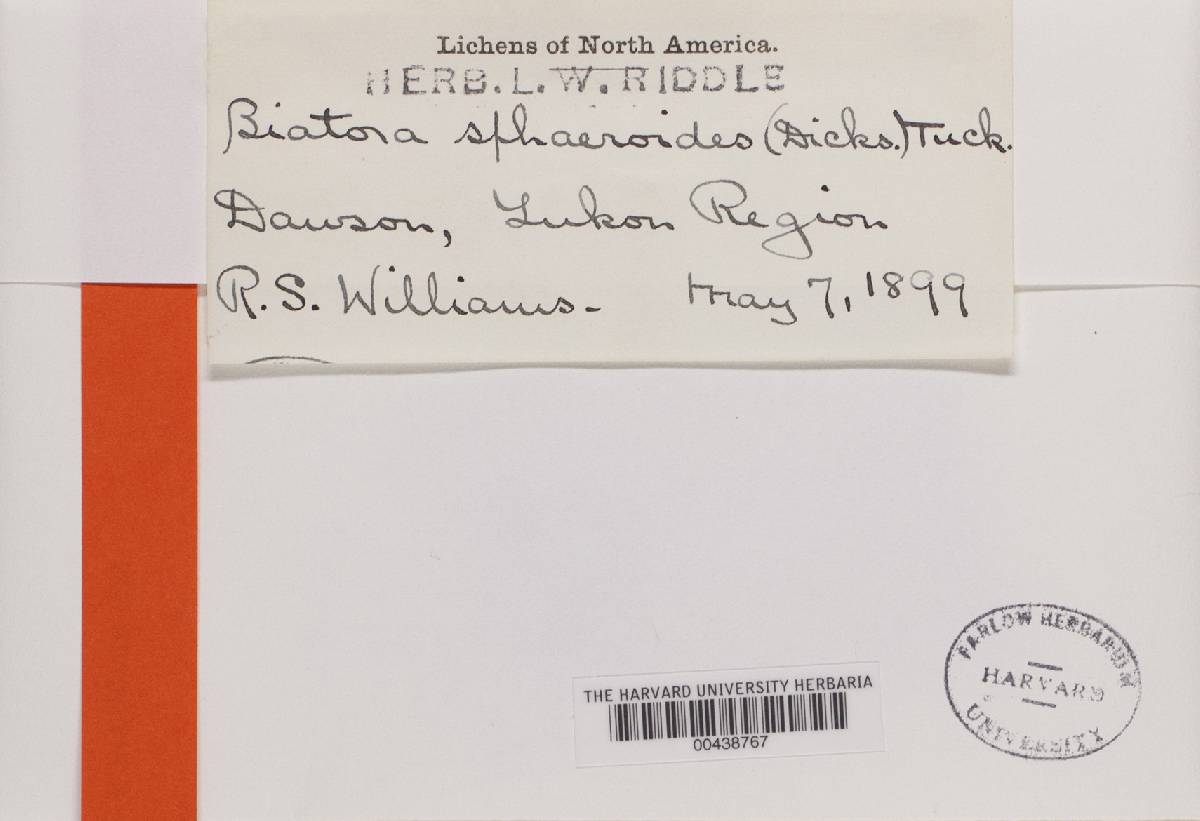 Lichens of North America.
HERB. L. W. RIDDLE
Biatora sphaeroides (Dicks.) Tuck.
Dawson, Yukon Region
R. S. Williams- May 7, 1899
THE HARVARD UNIVERSITY HERBARIA
00438767
FARLOW HERBARIUM
HARVARD
UNIVERSITY